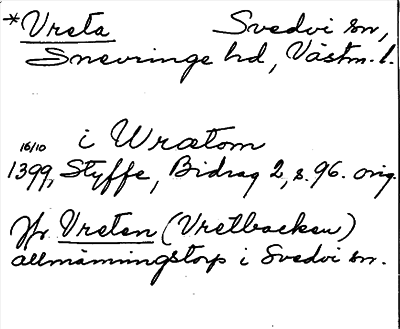 *Vreta Svedvi sn,
Snevringe hd, Västm. l.
16/10 i Wrætom
1399, Styffe, Bidrag 2, s. 96. orig.
Jfr Vreten (Vretbacken)
allmänningstorp i Svedvi sn.